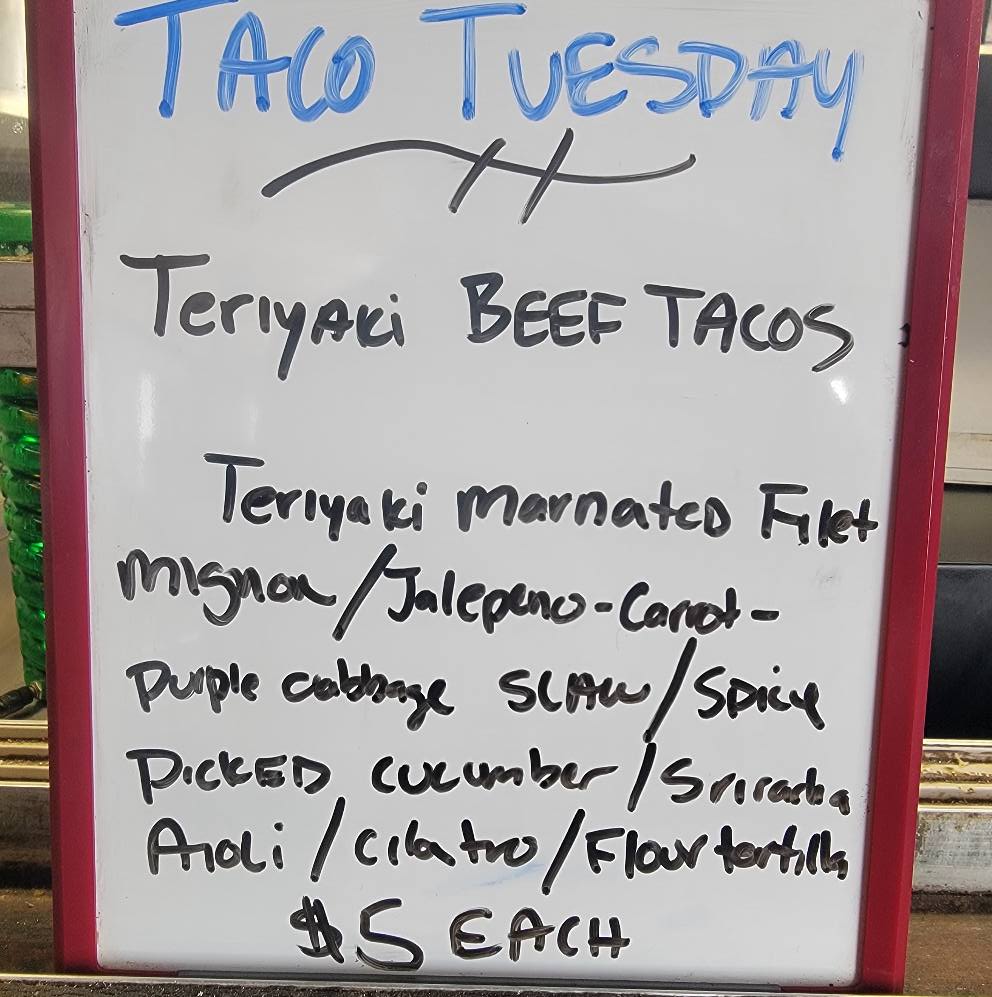 TACO TUESDAY
Teriyaki BEEF TACOS
Teriyaki marnated Filet
mignon/Jalepeno-Carrot-
Purple cabbage SLAW/Spicy
PICKED cucumber/Sriracha
Aioli/cilantro/Flour tortilla
$5 EACH